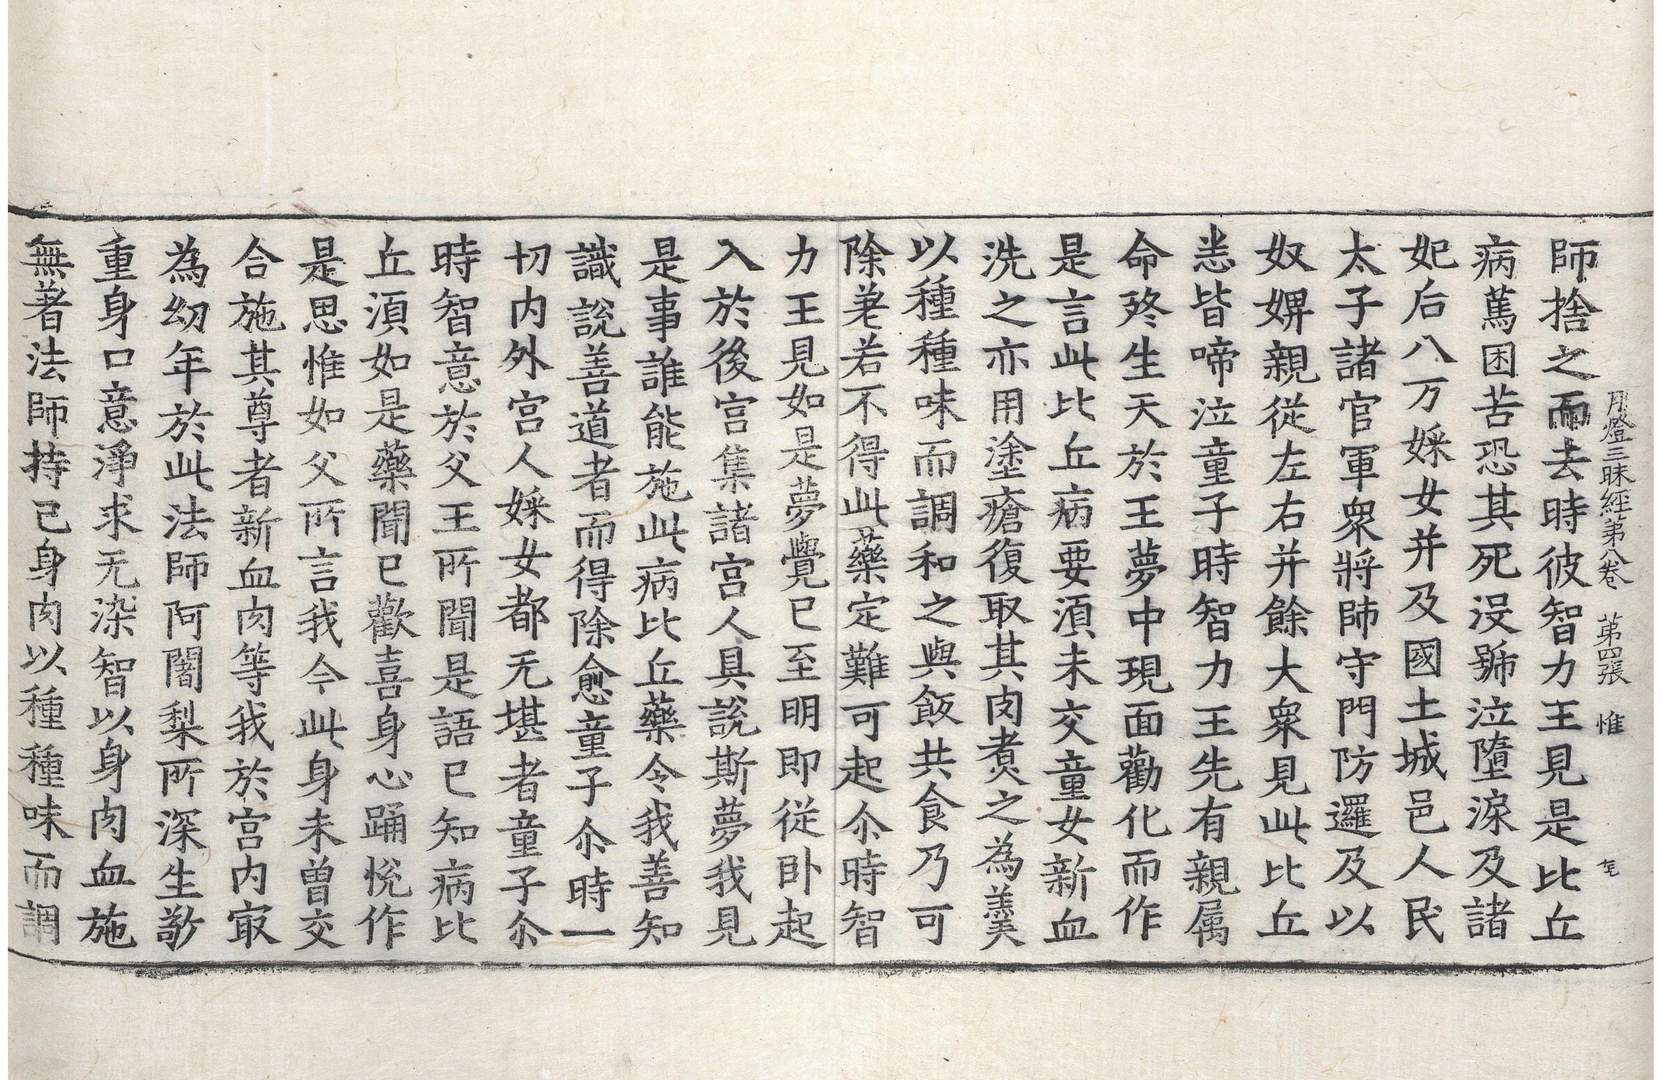 月燈三昧經第八卷　第四張　惟
師捨之而去時彼智力王見是比丘
病篤困苦恐其死没號泣墮淚及諸
妃后八万婇女并及國土城邑人民
太子諸官軍衆將師守門防邏及以
奴婢親從左右并餘大衆見此比丘
悉皆啼泣童子時智力王先有親属
命終生天於王夢中現面勸化而作
是言此比丘病要湏未交童女新血
洗之亦用塗瘡復取其肉煮之為羹
以種種味而調和之與飯共食乃可
除差若不得此藥定難可起尒時智
力王見如是夢覺已至明即從卧起
入於後宫集諸宫人具說斯夢我見
是事誰能施此病比丘藥令我善知
識說善道者而得除愈童子尒時一
切内外宫人婇女都无堪者童子尒
時智意於父王所聞是語已知病比
丘湏如是藥聞已歡喜身心踊悅作
是思惟如父所言我今此身未曾交
合施其尊者新血肉等我於宫内㝡
為幼年於此法師阿闍梨所深生敬
重身口意淨求无染智以身肉血施
無著法師持已身肉以種種味而調